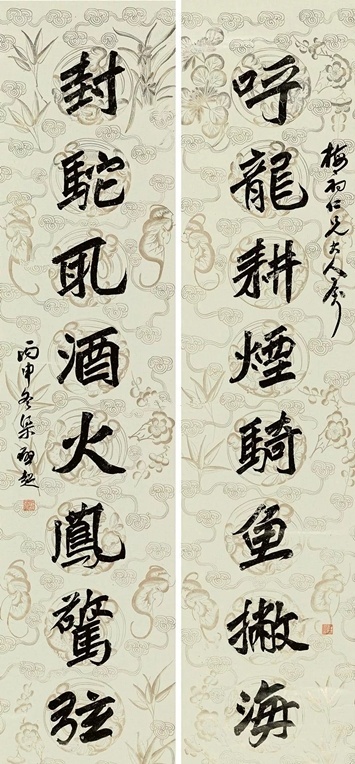 梅初仁兄大人屬
呼龍耕煙騎魚撇海
封駝乳酒火鳳驚弦
丙申冬梁啟超